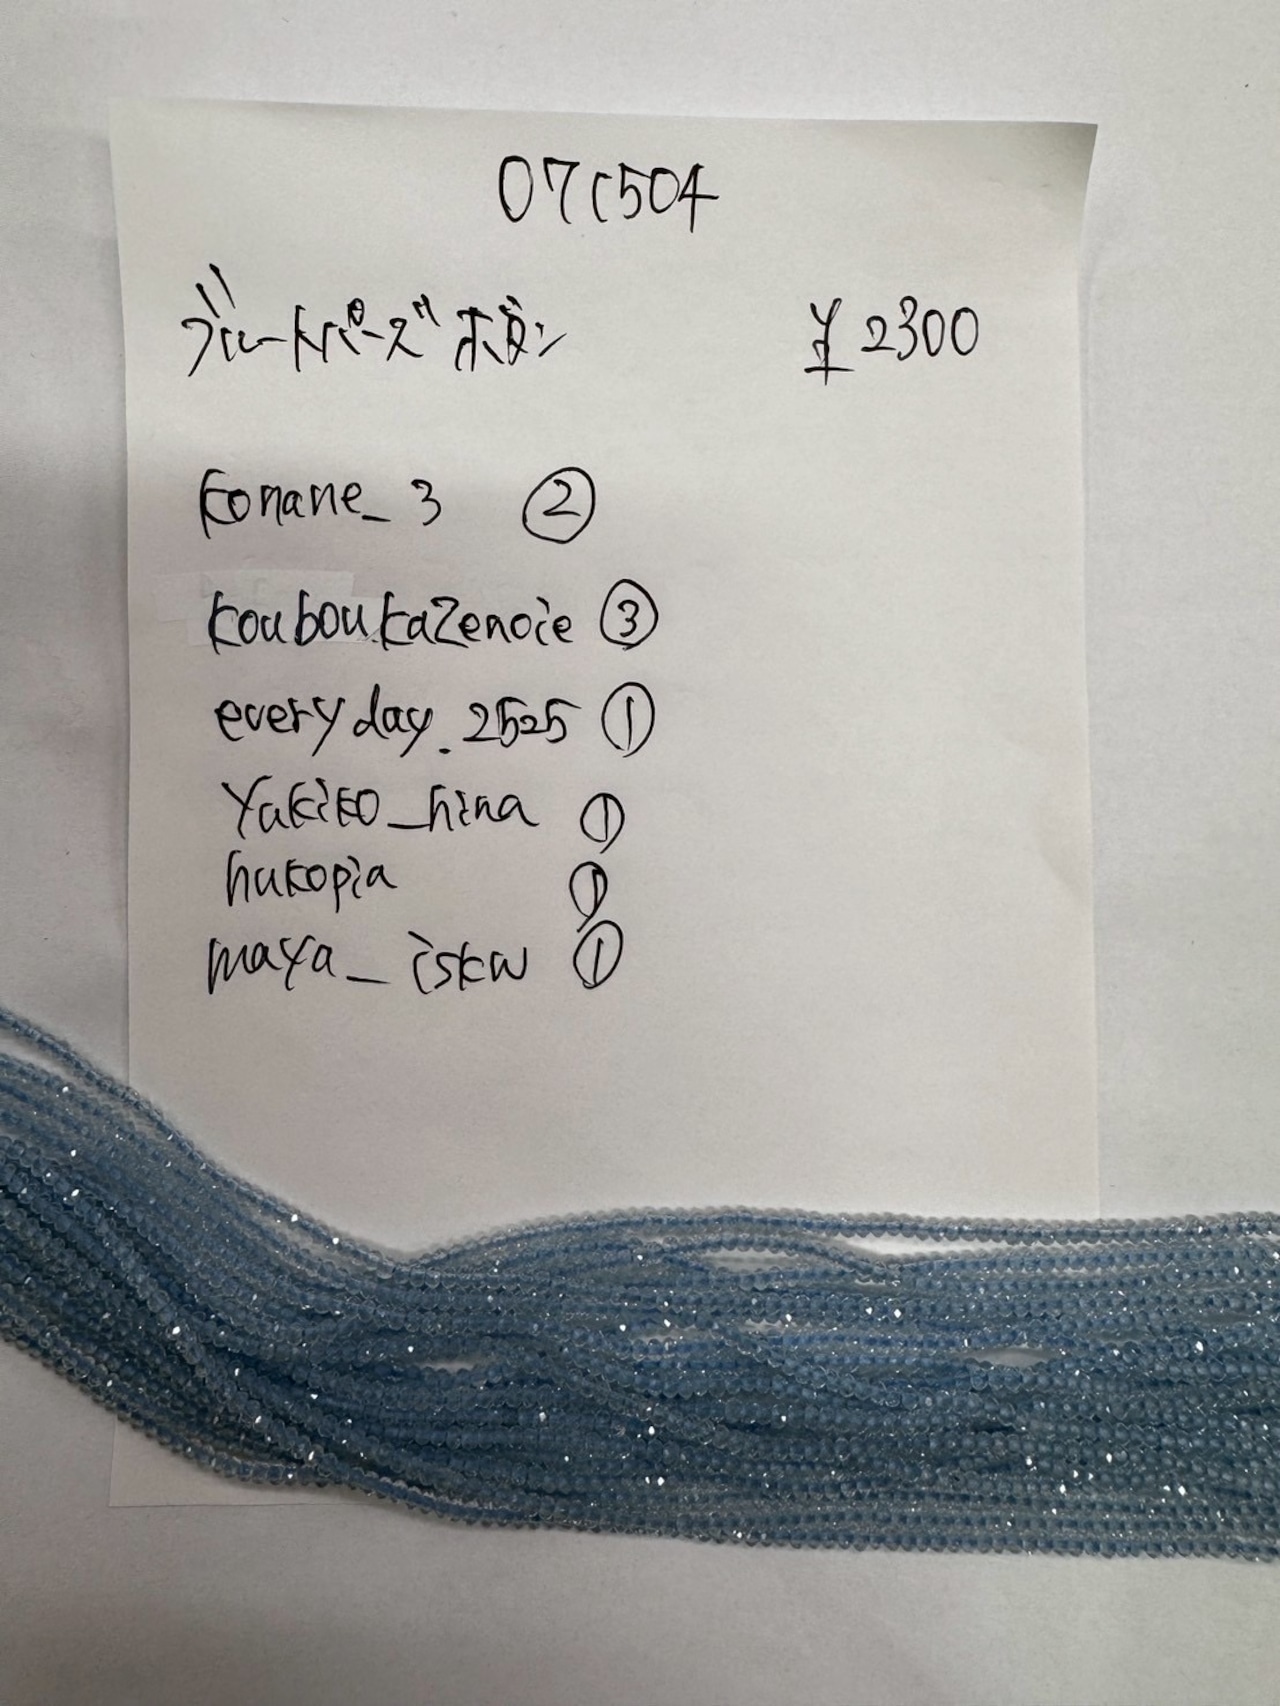 07C504
ブルートパーズ ボタン ¥2300
konane_3 ②
kouboukazenoie ③
everyday.2525 ①
yakiko_hina ①
hukopia ①
maya_iskw ①